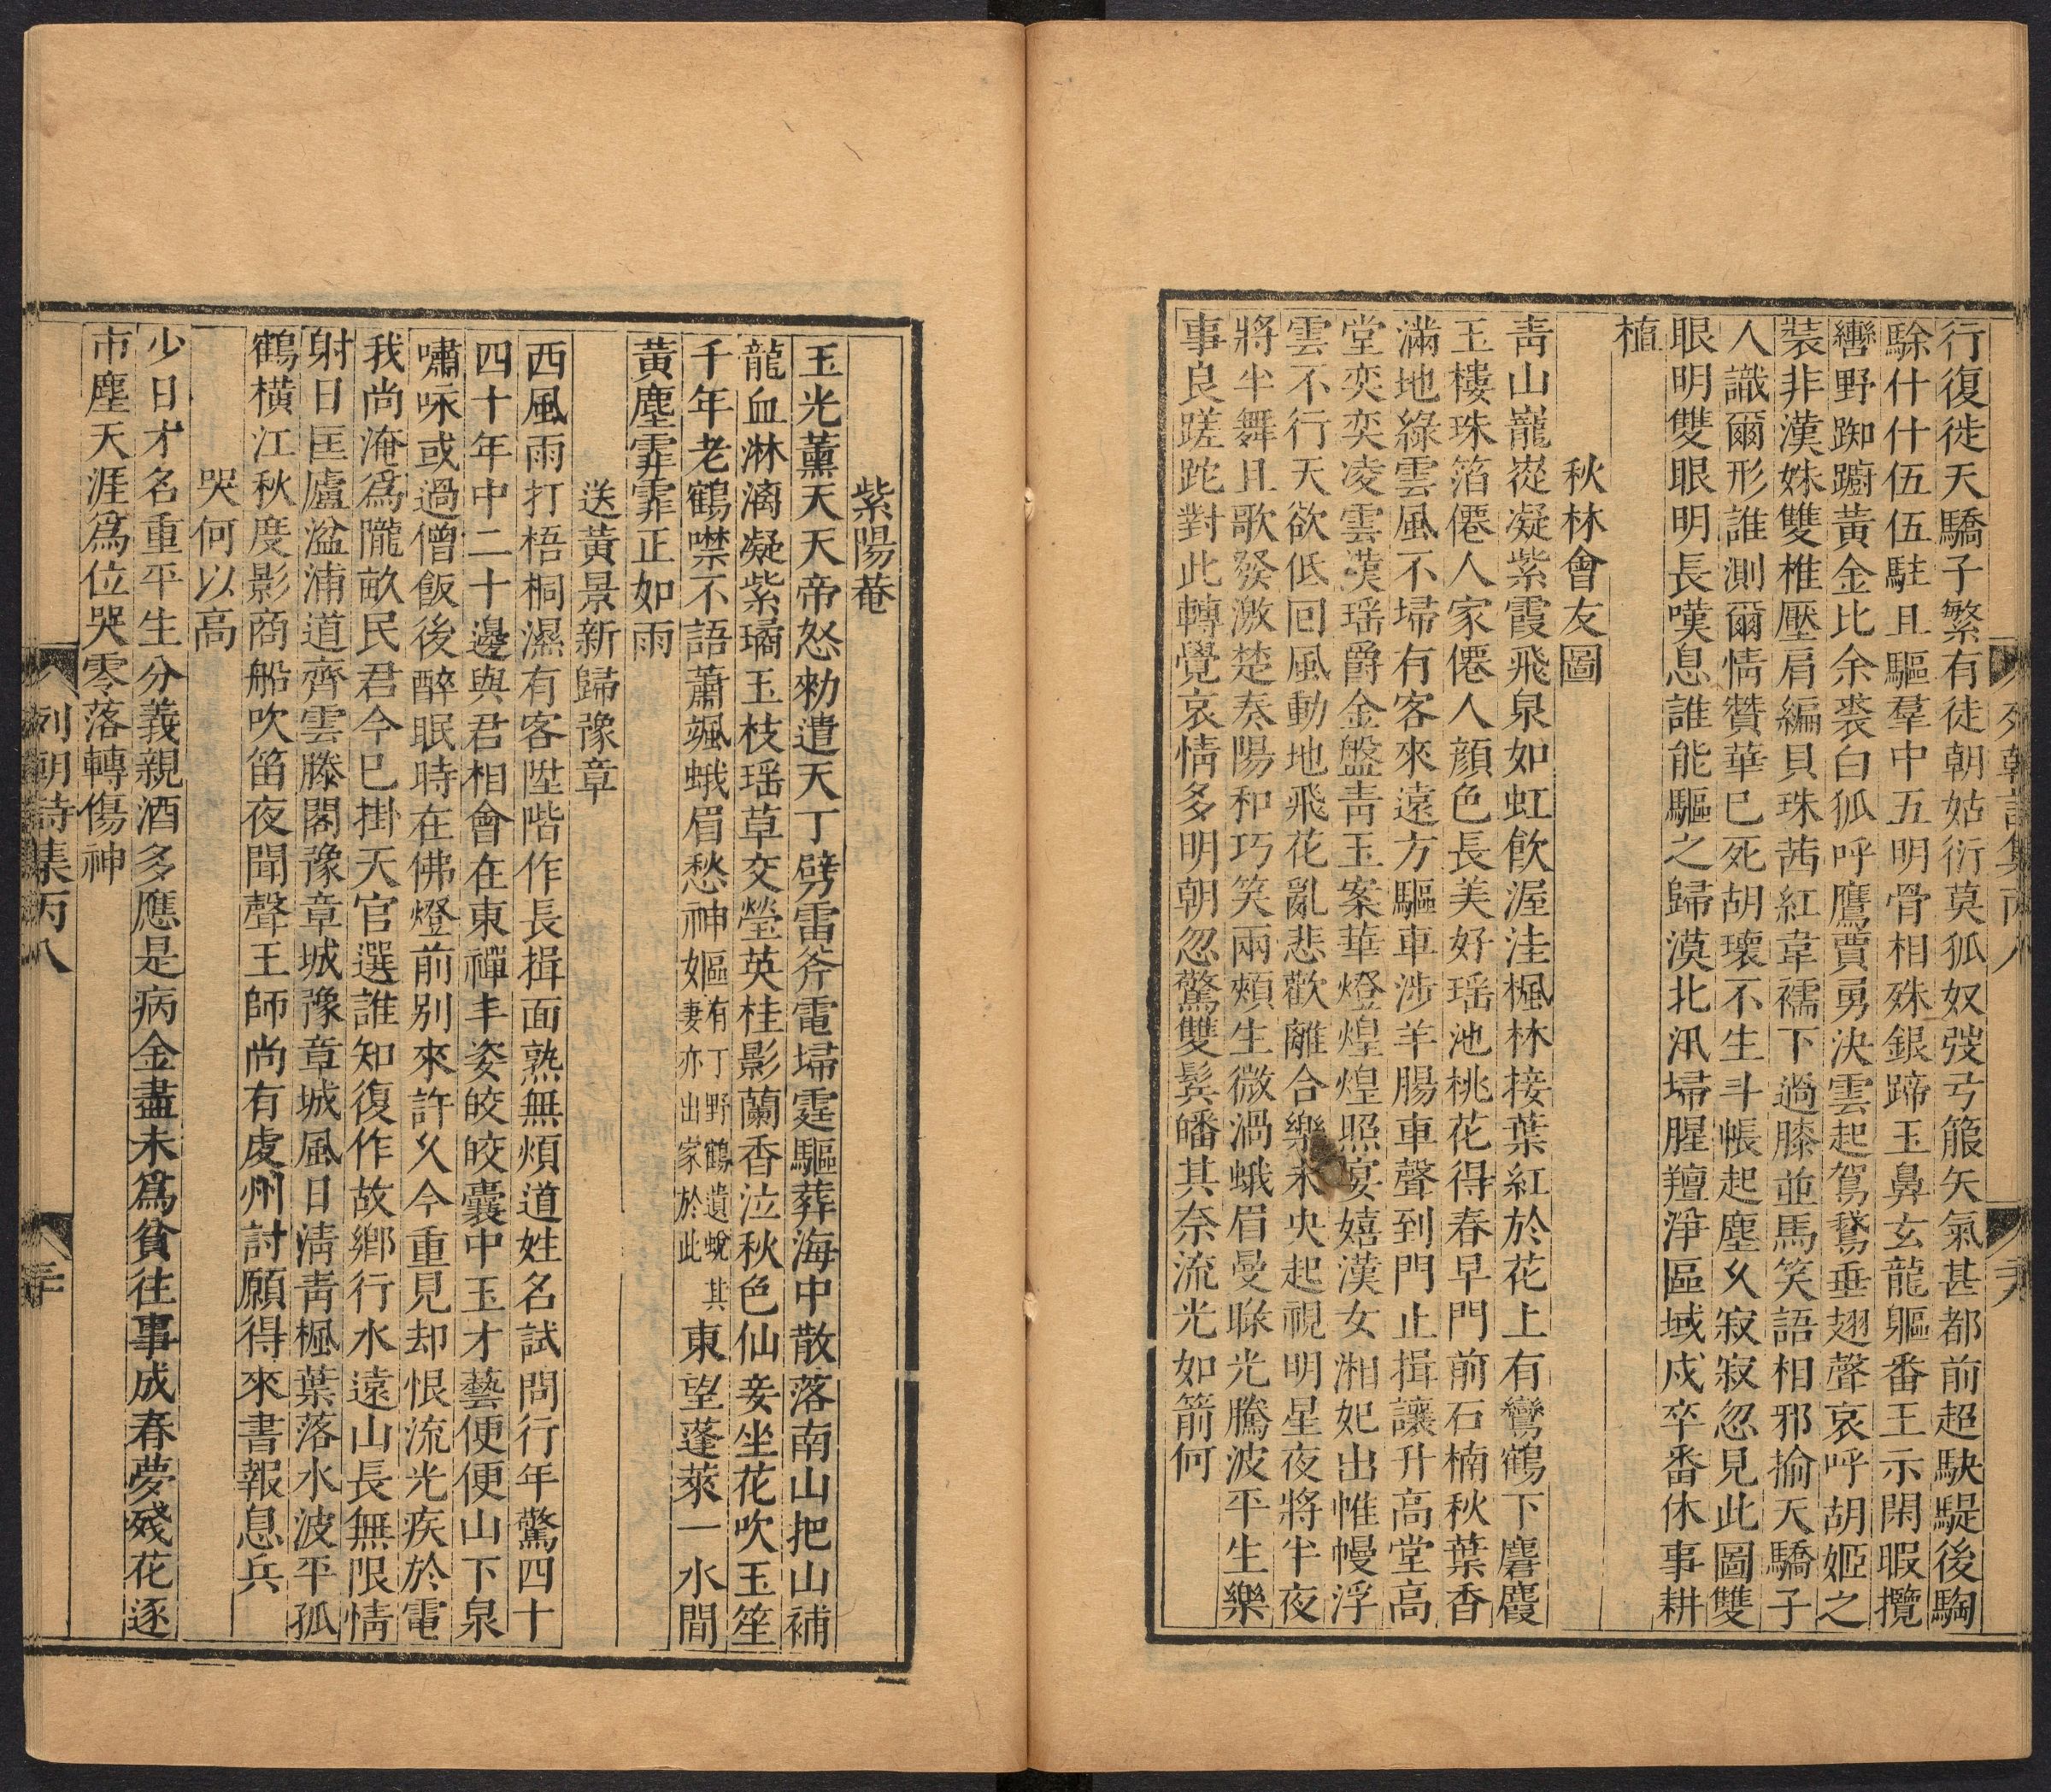 列朝詩集丙八
行復徙天驕子繁有徒朝姑衍莫狐奴弢弓箙矢氣甚都前超駃騠後騊
駼什什伍伍駐且驅羣中五明骨相殊銀蹄玉鼻玄龍軀番王示閑暇攬
轡野踟躕黃金比余裘白狐呼鷹賈勇決雲起鴐鵞垂翅聲哀呼胡姬之
裝非漢姝雙椎壓肩編貝珠茜紅韋襦下過膝並馬笑語相邪揄天驕子
人識爾形誰測爾情贊華巳死胡瓌不生斗帳起塵久寂寂忽見此圖雙
眼明雙眼明長嘆息誰能驅之歸漠北汛埽腥羶淨區域戍卒番休事耕
植
秋林會友圖
靑山巃嵸凝紫霞飛泉如虹飮渥洼楓林接葉紅於花上有鸞鶴下麏麚
玉樓珠箔僊人家僊人顏色長美好瑶池桃花得春早門前石楠秋葉香
滿地綠雲風不埽有客來遠方驅車涉羊腸車聲到門止揖讓升高堂高
堂奕奕凌雲漢瑶爵金盤靑玉案華燈煌煌照宴嬉漢女湘妃出帷幔浮
雲不行天欲低回風動地飛花亂悲歡離合樂未央起視明星夜將半夜
將半舞且歌發激楚奏陽和巧笑兩頰生微渦蛾眉曼睩光騰波平生樂
事良蹉跎對此轉覺哀情多明朝忽驚雙鬂皤其奈流光如箭何
紫陽菴
玉光薰天天帝怒勑遣天丁劈雷斧電埽霆驅葬海中散落南山把山補
龍血淋漓凝紫璚玉枝瑶草交瑩英桂影蘭香泣秋色仙妾坐花吹玉笙
千年老鶴噤不語蕭颯蛾眉愁神嫗有丁野鶴遺蛻其妻亦出家於此東望蓬萊一水間
黃塵霏霏正如雨
送黃景新歸豫章
西風雨打梧桐濕有客陞階作長揖面熟無煩道姓名試問行年驚四十
四十年中二十邊與君相會在東禪丰姿皎皎囊中玉才藝便便山下泉
嘯咏或過僧飯後醉眠時在佛燈前別來許久今重見却恨流光疾於電
我尚淹爲隴畝民君今巳掛天官選誰知復作故鄉行水遠山長無限情
射日匡廬湓浦道齊雲滕閣豫章城豫章城風日淸靑楓葉落水波平孤
鶴橫江秋度影商船吹笛夜聞聲王師尚有䖍州討願得來書報息兵
哭何以高
少日才名重平生分義親酒多應是病金盡未爲貧往事成春夢殘花逐
市塵天涯爲位哭零落轉傷神
列朝詩集丙八
三十